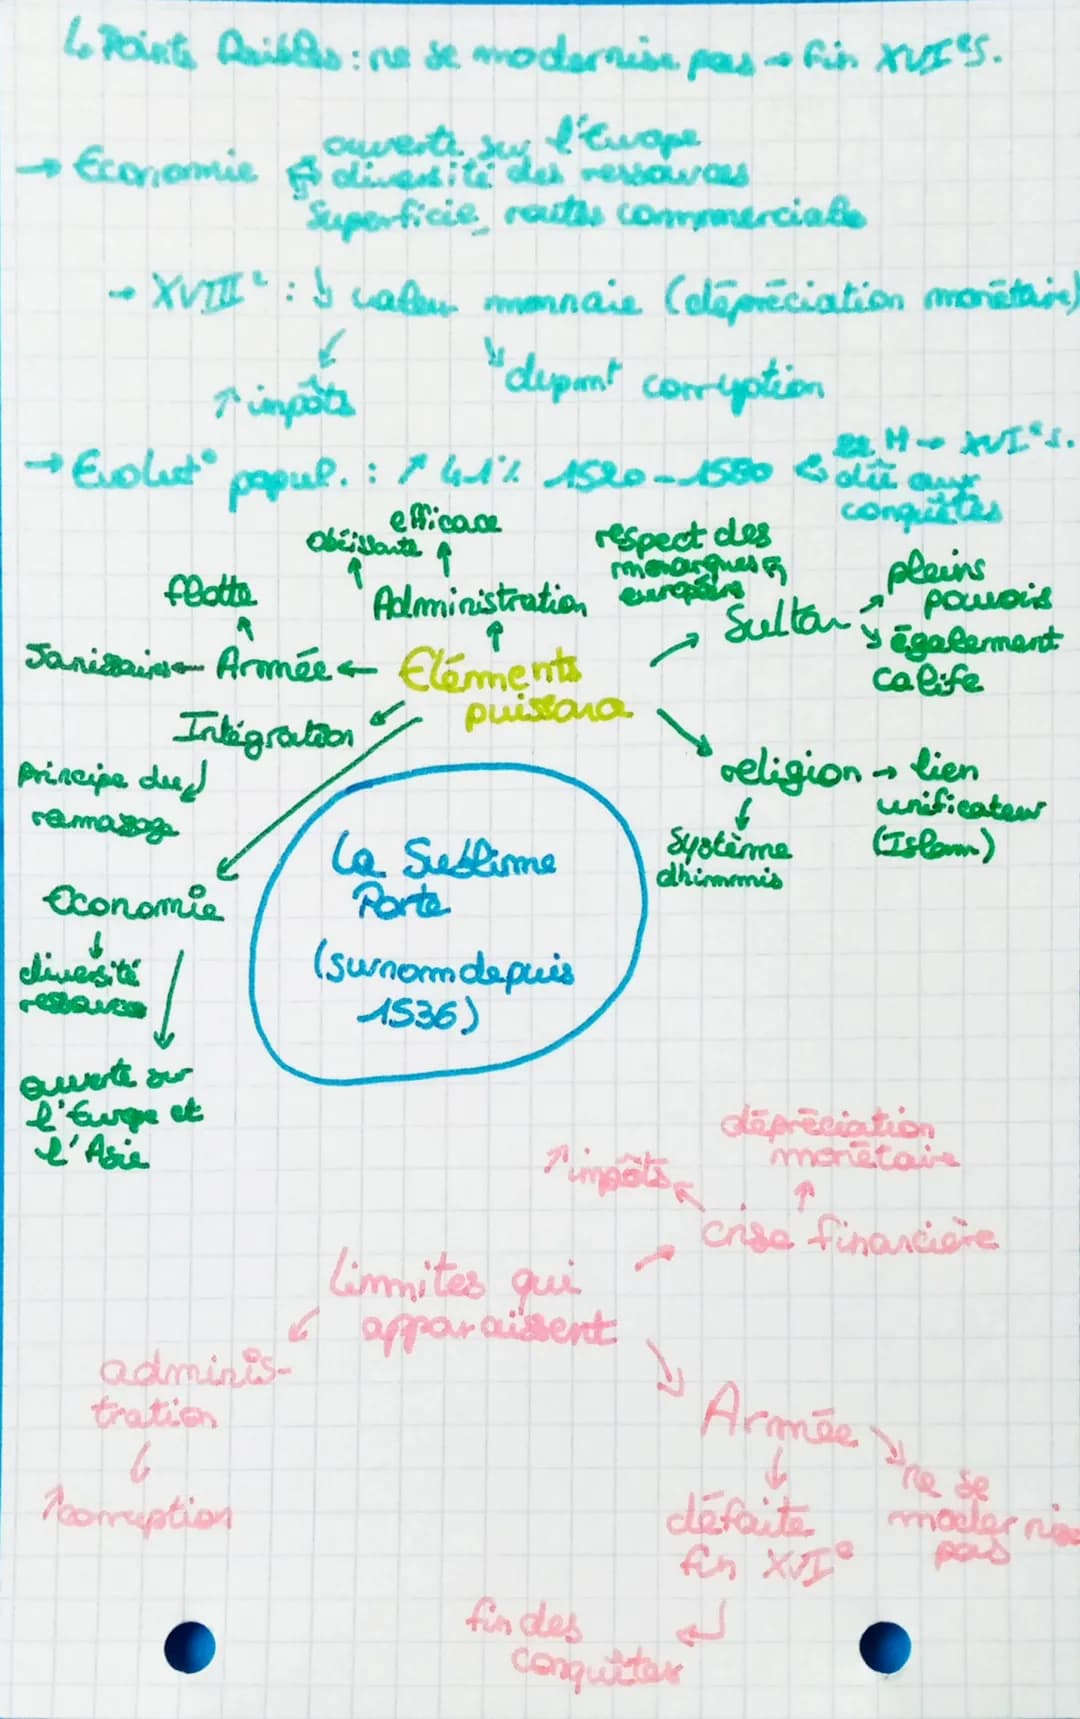 ↳ Points faibles : ne se modernise pas → fin XVIᵉs.
→ Economie
ouverte sur l'Europe
diversité des ressources
Superficie, routes commerciale
→ XVIIIᵉ : ↓ valeur monnaie (dépréciation monétaire)
↑ impôts
dvpmt corruption
→ Evolut° popul. : ↗ 41% 1520-1580
M → XVIᵉs.
dû aux
conquêtes
efficace
Obéissante
Administration
flotte
Janissaire ← Armée ←
Eléments
puissance
respect des
monarques
européens
Sultan
pleins
pouvoirs
également
calife
Intégration
principe du
ramassage
religion → lien
unificateur
(Islam)
Système
dhimmis
Economie
diversité
ressources
ouverte sur
l'Europe et
l'Asie
La Sublime
Porte
(surnom depuis
1536)
dépréciation
monétaire
↗ impôts
crise financière
Limites qui
apparaissent
adminis-
tration
↗ corruption
Armée
ne se
modernise
pas
défaite
fin XVIᵉ
fin des
conquêtes